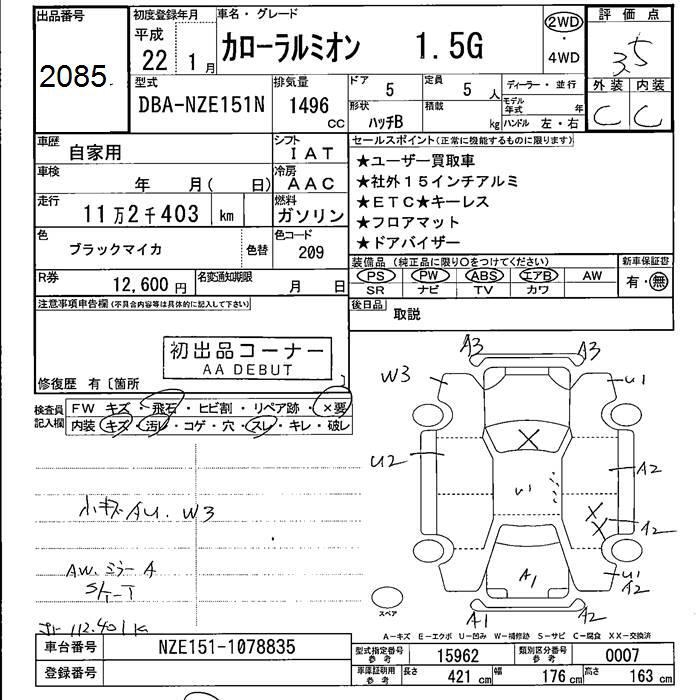 出品番号
2085
初度登録年月
平成
22 1月
車名・グレード
カローラルミオン 1.5G
2WD
・
4WD
評価点
3.5
外装 内装
C C
型式
DBA-NZE151N
排気量
1496 CC
ドア 5
定員 5 人
形状 ハッチB
積載 kg
ディーラー・並行
モデル年式 年
ハンドル 左・右
車歴 自家用
シフト IAT
セールスポイント(正常に機能するものに限ります)
★ユーザー買取車
★社外15インチアルミ
★ETC★キーレス
★フロアマット
★ドアバイザー
車検 年 月( 日)
冷房 AAC
走行 11万2千403 km
燃料 ガソリン
色 ブラックマイカ 色替
色コード 209
装備品(純正品に限り○をつけてください)
PS PW ABS エアB AW
SR ナビ TV カワ
新車保証書
有・無
R券 12,600 円
名変通知期限 月 日
後日品 取説
注意事項申告欄(不具合内容等は具体的に記入して下さい)
初出品コーナー
AA DEBUT
修復歴 有〔箇所 〕
検査員記入欄
FW キズ・飛石・ヒビ割・リペア跡・×要
内装・キズ・汚レ・コゲ・穴・スレ・キレ・破レ
小キズ AU. W3
AW. ミラー A
A3 A3
W3 U1
U2 A2
U1
A2
A1
U1
A2
A1 A2
スペア
A-キズ E-エクボ U-凹み W-補修跡 S-サビ C-腐食 XX-交換済
車台番号 NZE151-1078835
登録番号
型式指定番号 参考 15962
類別区分番号 参考 0007
車庫証明用 参考 長さ 421 cm 幅 176 cm 高さ 163 cm